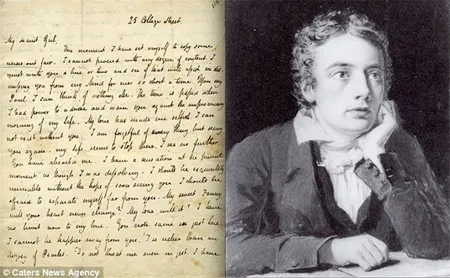 25 College Street.
My dearest Girl,
This moment I have set myself to copy some
verses out fair. I cannot proceed with any degree of content. I
must write you a line or two and see if that will assist in dis
missing you from my Mind for ever so short a time. Upon my
Soul I can think of nothing else. The time is passed when
I had power to advise and warn you against the unpromising
morning of my Life. My love has made me selfish. I can
not exist without you. I am forgetful of every thing but seeing
you again my Life seems to stop there. I see no further.
You have absorb'd me. I have a sensation at the present
moment as though I was dissolving. I should be exquisitely
miserable without the hope of soon seeing you. I should be
afraid to separate myself far from you. My sweet Fanny
will your heart never change? My love will it? I have
no limit now to my love. Your note came in just here
I cannot be happier away from you. 'Tis richer than an
Argosy of Pearles. Do not threat me even in jest. I have
© Caters News Agency